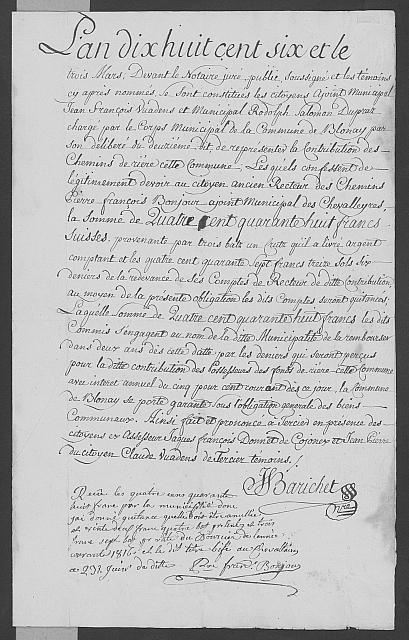 L'an dix huit cent six et le
trois Mars, Devant le Notaire juré public soussigné et les témoins
cy après nommés, se sont constitués les citoyens Ajoint Municipal
Jean François Vuadens et Municipal Rodolph Salomon Dupraz
chargé par le Corps Municipal de la Commune de Blonay par
son deliberé du deuxieme dit de representer la Contribution des
Chemins de rière cette Commune, Lesquels confessent de
légitimement devoir au citoyen ancien Recteur des Chemins
Pierre François Bonjour ajoint Municipal des Chevalleyres,
la somme de Quatre cent quarante huit francs
suisses, provenante par trois batz un Crutz qu'il a livré argent
comptant et les quatre cent quarante sept francs treize sols six
deniers de la redevance de ses Comptes de Recteur de ditte Contribution
au moyen de la presente obligation les dits Comptes seront quitancés,
Laquelle somme de Quatre cent quarante huit francs les dits
Commis s'engagent au nom de la ditte Municipalité de la rembourser
dans deux ans dès cette datte par les deniers qui seront perçus
pour la ditte contribution des Possesseurs des fonds de rière cette Commune
avec interet annuel du cinq pour cent courant dès ce jour, la Commune
de Blonay se porte garante sous l'obligation generale des biens
Communaux. Ainsi fait et prononcé à Tercier en présence des
citoyens ex Assesseur Jaques François Donnet de Cojonex et Jean Pierre
du citoyen Claude Vuadens de Tercier témoins.
Barichet
nre
Recu les quatre cens quarante
huit franc par la municipalité dont
jai donné quitance
et trente neuf franc quatre bat
sept bat
1816 et le dit titre biffé au Chevallaire
a 23e Juin de ditte Pre frans Bonjour